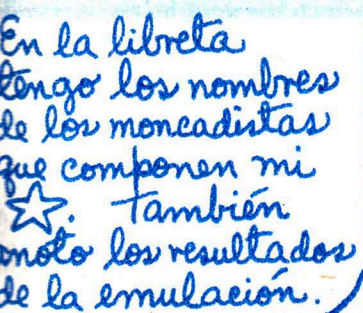 En la libreta
tengo los nombres
de los moncadistas
que componen mi
☆. También
anoto los resultados
de la emulación.